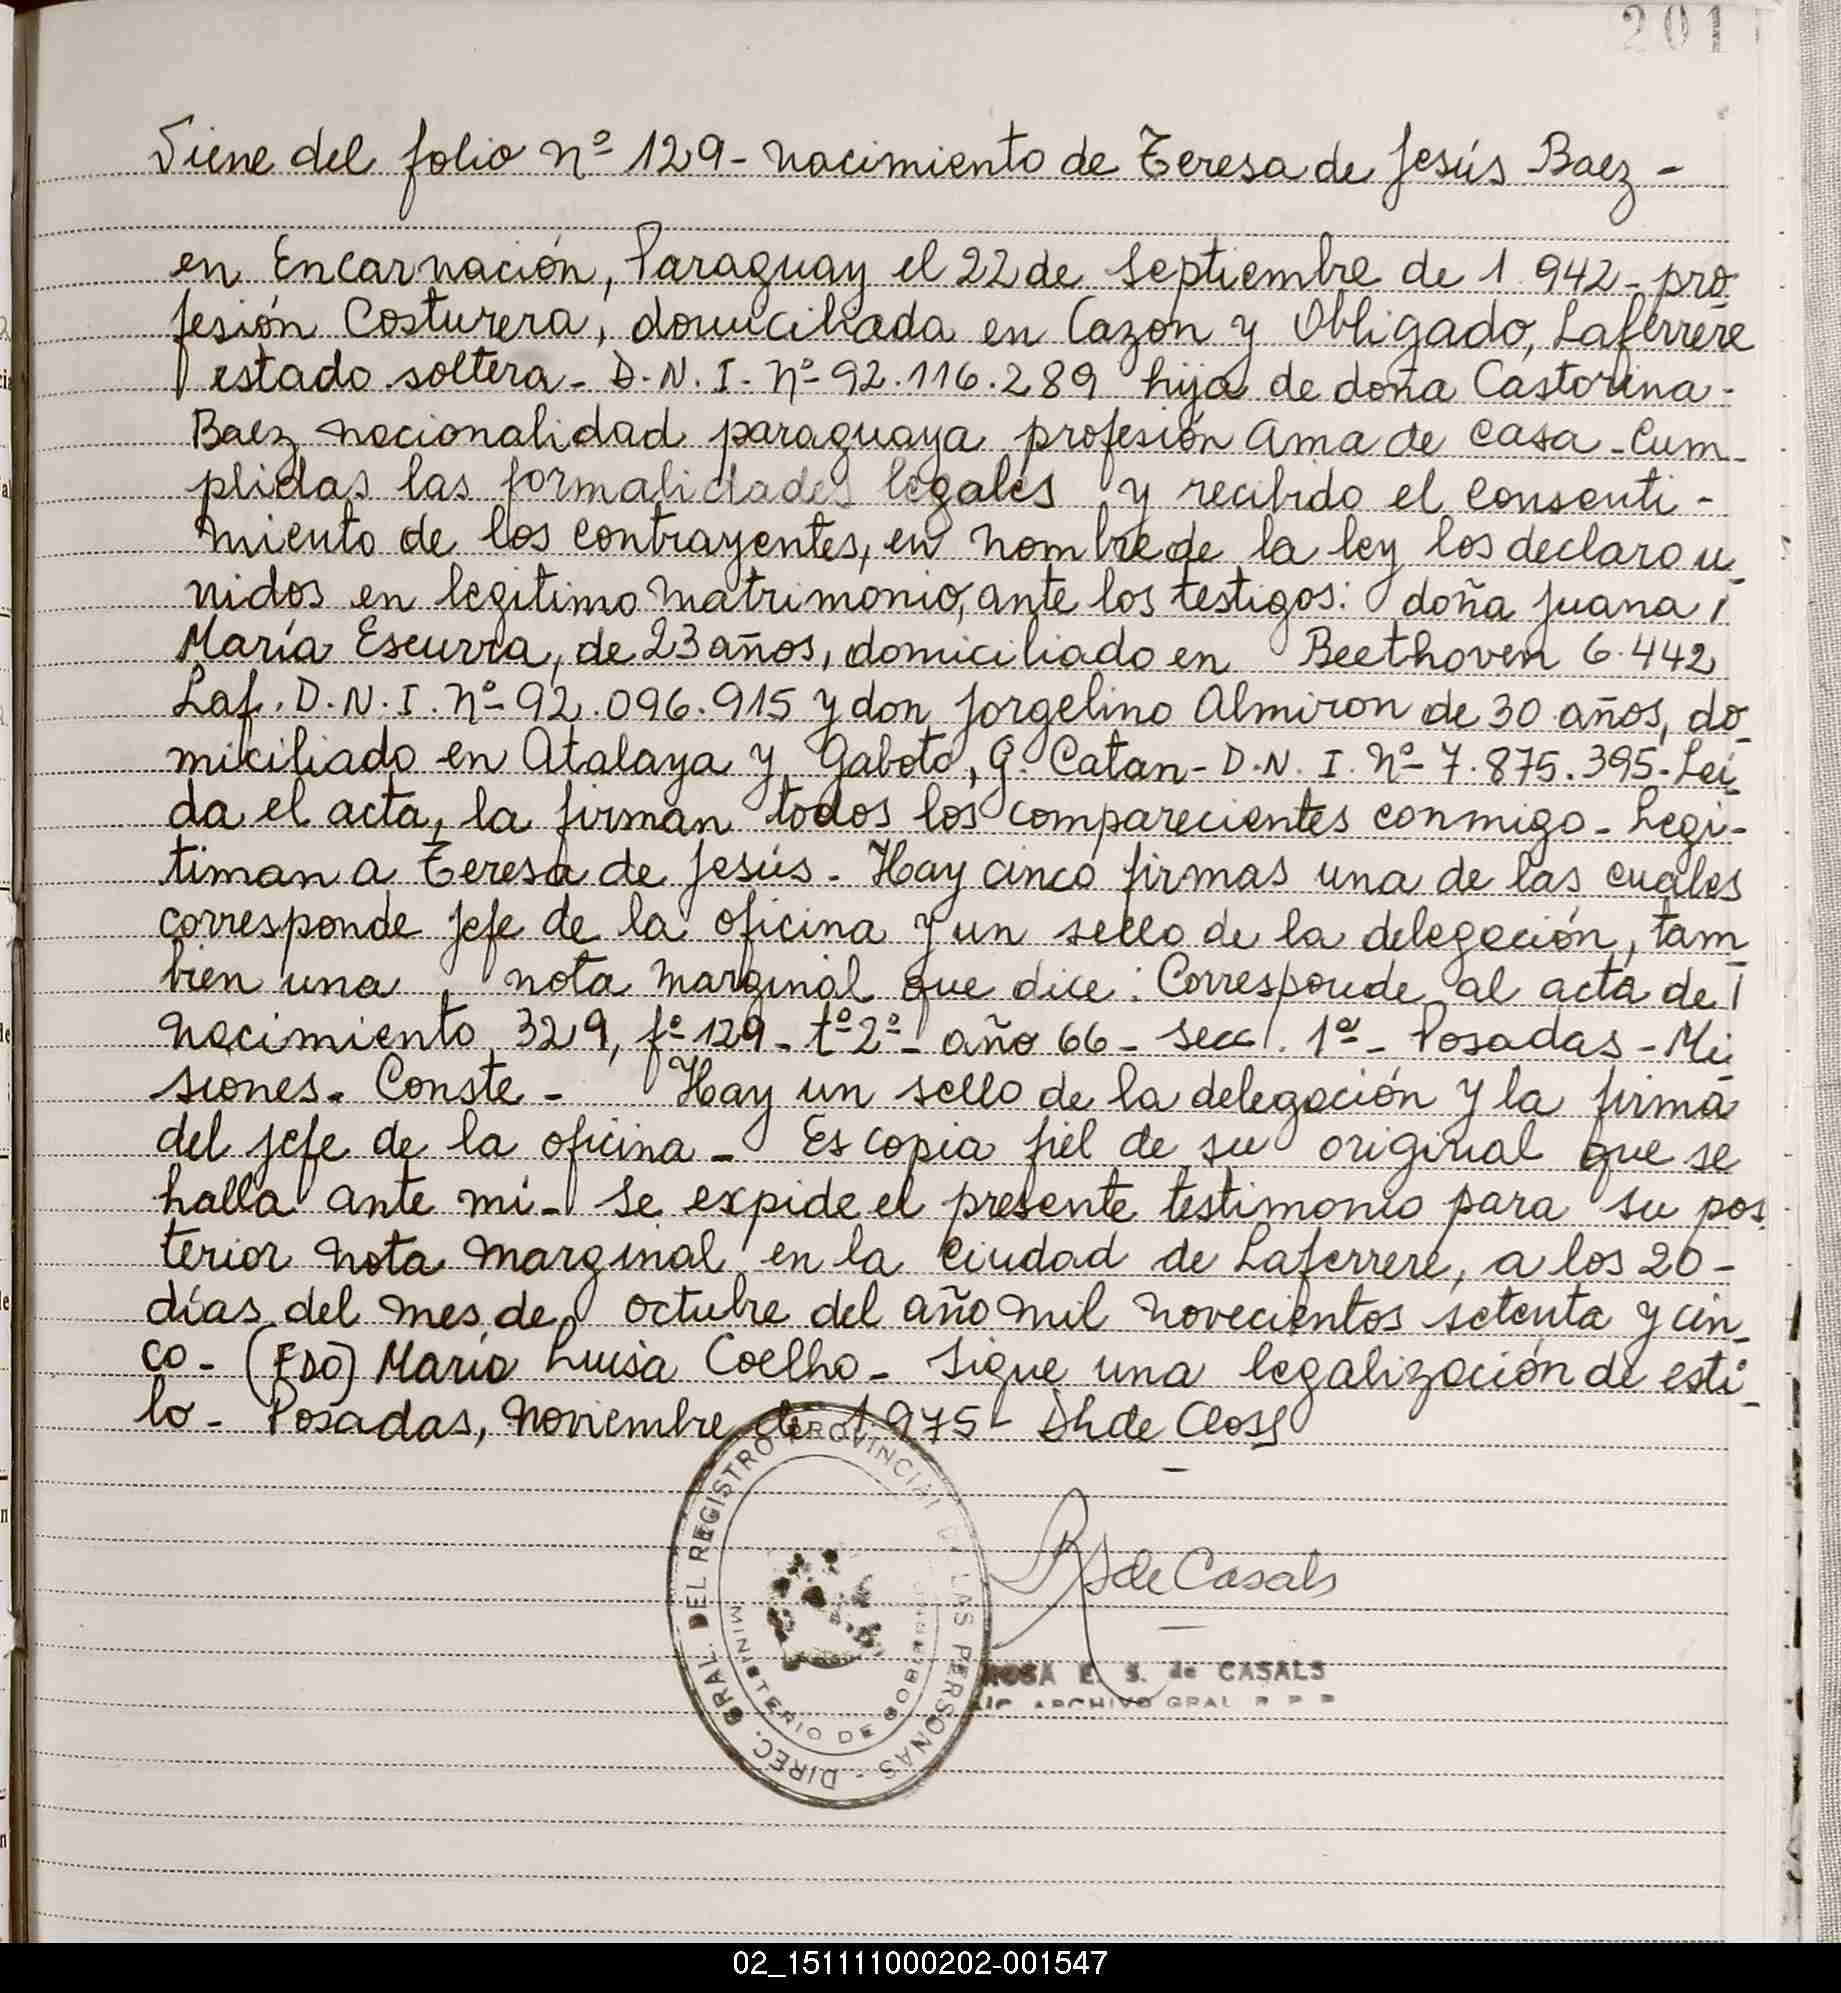 201
Viene del folio nº 129 - nacimiento de Teresa de Jesús Baez -
en Encarnación, Paraguay el 22 de Septiembre de 1.942 - pro
fesión Costurera, domiciliada en Cazon y Obligado, Laferrere
estado soltera - D.N.I. nº 92.116.289 hija de doña Castorina -
Baez nacionalidad paraguaya profesión Ama de casa - Cum_
plidas las formalidades legales y recibido el consenti -
miento de los contrayentes, en nombre de la ley los declaro u_
nidos en legitimo matrimonio, ante los testigos: doña Juana
María Escurra, de 23 años, domiciliado en Beethoven 6.442
Laf. D.N.I. nº 92.096.915 y don Jorgelino Almiron de 30 años, do_
miciliado en Atalaya y Gaboto, G. Catan - D.N.I. nº 7.875.395 - Lei_
da el acta, la firman todos los comparecientes conmigo - Legi-
timan a Teresa de Jesús - Hay cinco firmas una de las cuales
corresponde jefe de la oficina y un sello de la delegación, tam_
bien una nota marginal que dice: Corresponde al acta de
nacimiento 329, fº 129 - tº 2º - año 66 - secc. 1ª - Posadas - Mi_
siones. Conste - Hay un sello de la delegación y la firma
del jefe de la oficina - Es copia fiel de su original que se
halla ante mi - Se expide el presente testimonio para su pos
terior nota marginal en la ciudad de Laferrere, a los 20 -
días del mes de octubre del año mil novecientos setenta y cin_
co - (FDO) María Luisa Coelho - Sigue una legalización de esti_
lo - Posadas, noviembre de 1975 - Dhde Closs
DIREC. GRAL. DEL REGISTRO PROVINCIAL DE LAS PERSONAS -
MINISTERIO DE GOBIERNO
RSde Casals
ROSA E. S. de CASALS
ARCHIVO GRAL R P P
02_151111000202-001547